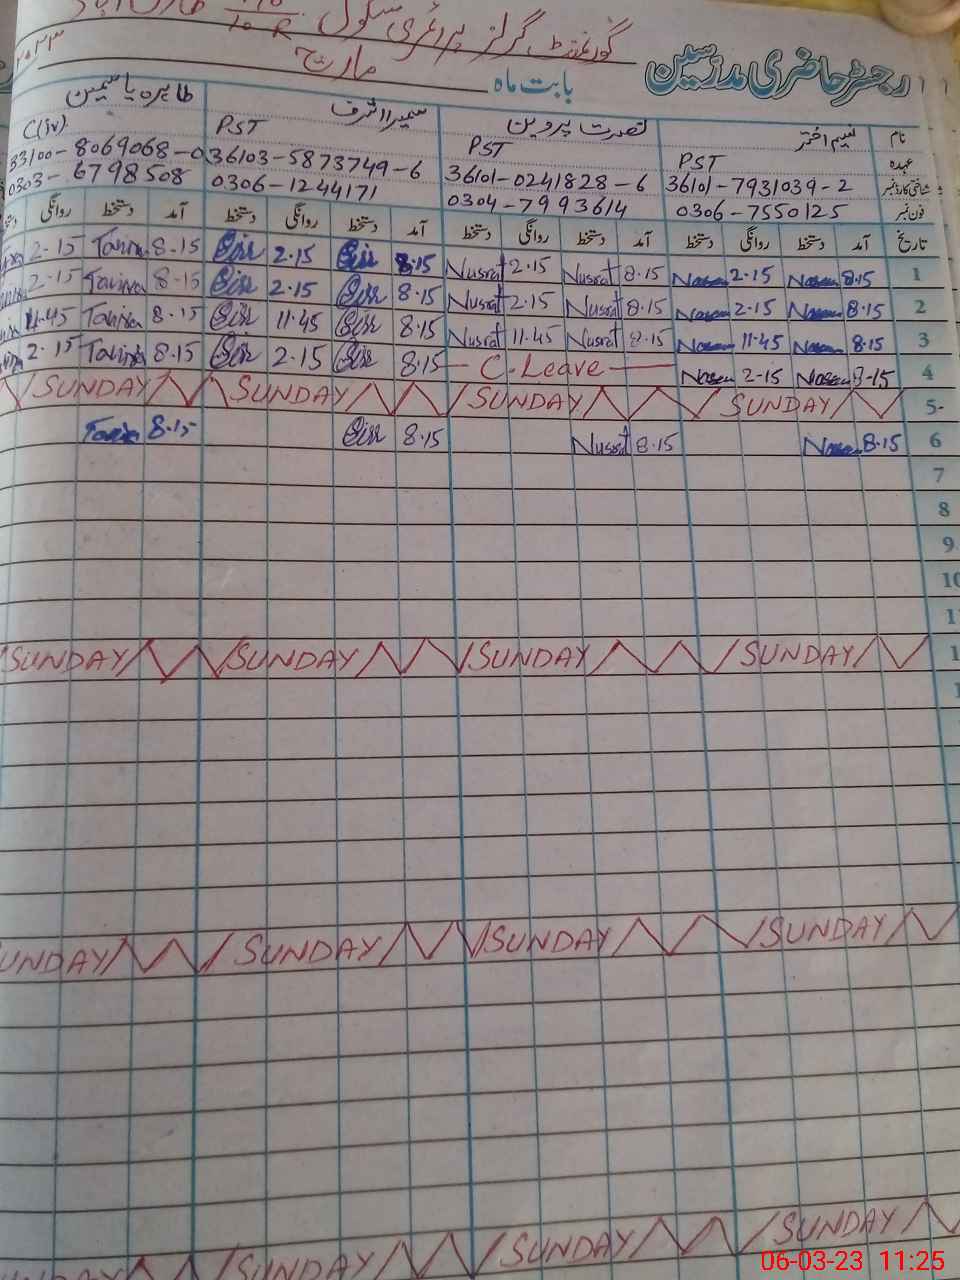 رجسٹر حاضری مدرسین
گورنمنٹ گرلز پرائمری سکول
10-R
بابت ماہ مارچ ۲۰۲۳
نام نسیم اختر نصرت پروین سمیرا اشرف طاہرہ یاسمین
عہدہ PST PST PST C(iv)
شناختی کارڈ نمبر 36101-7931039-2 36101-0241828-6 36103-5873749-6 33100-8069068-0
فون نمبر 0306-7550125 0304-7993614 0306-1244171 0303-6798508
تاریخ آمد دستخط روانگی دستخط آمد دستخط روانگی دستخط آمد دستخط روانگی دستخط آمد دستخط روانگی
1 8.15 2.15 8.15 Nusrat 2.15 Nusrat 8.15 2.15 8.15 2.15
2 8.15 2.15 8.15 Nusrat 2.15 Nusrat 8.15 2.15 8.15 2.15
3 8.15 11.45 8.15 Nusrat 11.45 Nusrat 8.15 11.45 8.15 11.45
4 8.15 2.15 C.Leave 8.15 2.15 8.15 2.15
5- SUNDAY SUNDAY SUNDAY SUNDAY
6 8.15 8.15 Nusrat 8.15 8.15
7
8
9
10
SUNDAY SUNDAY SUNDAY SUNDAY
SUNDAY SUNDAY SUNDAY SUNDAY
SUNDAY SUNDAY SUNDAY SUNDAY
06-03-23 11:25